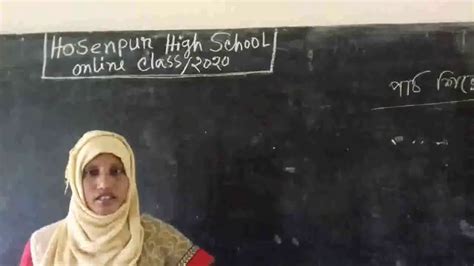 Hosenpur High School
online class/২০২০
পাঠ
....